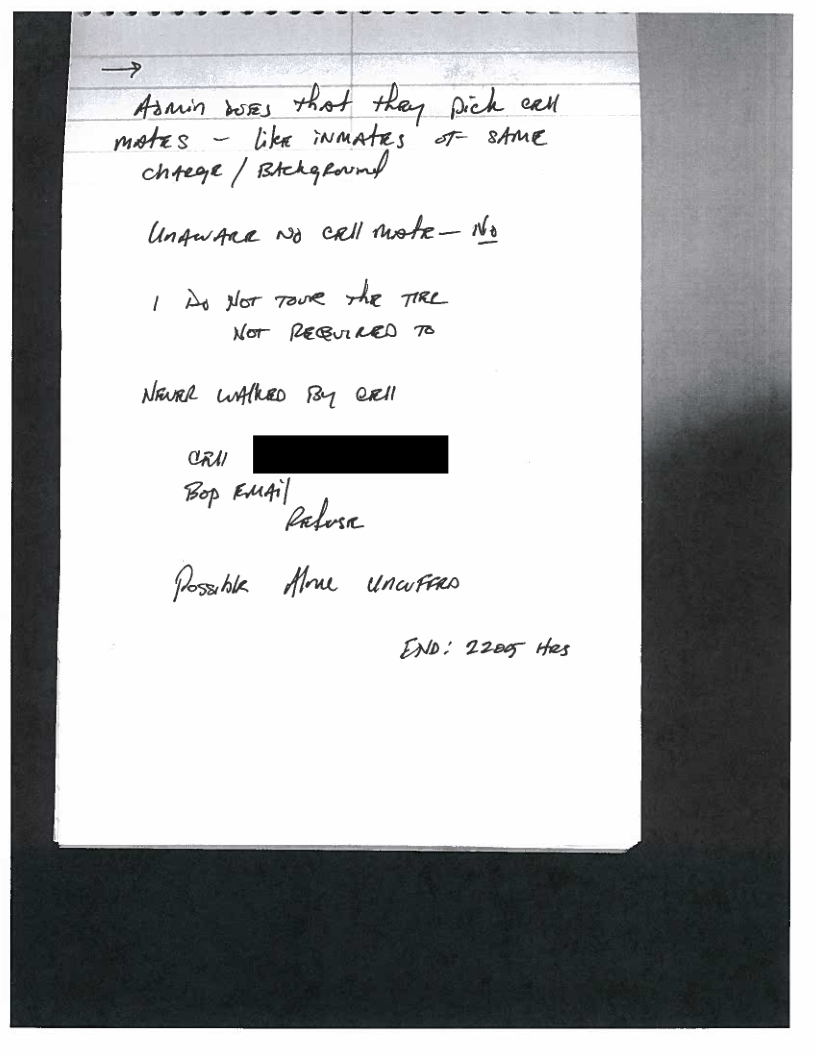 →
Admin does that they pick cell
mates - like inmates of same
charge / Background
Unaware no cell mate - No
I Do Not Tour the Tire
Not Required to
Never walked By cell
Cell
Bop Email
Refuse
Possible Alone Uncuffed
END: 2205 Hrs